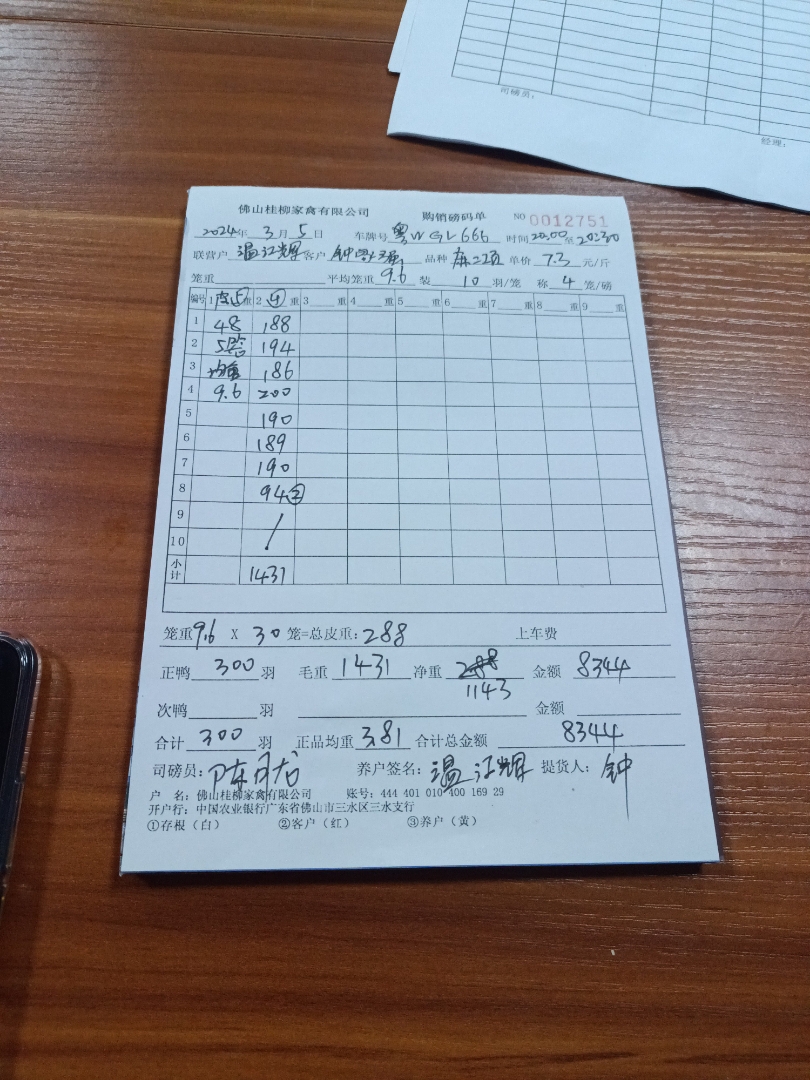 司磅员：
经理：
佛山桂柳家禽有限公司 购销磅码单 NO 0012751
2024年 3月 5日 车牌号 粤W GL666 时间 20:00至20:30
联营户 温江辉 客户 钟 品种 麻二项 单价 7.3 元/斤
笼重 平均笼重 9.6 装 10 羽/笼 称 4 笼/磅
编号 1 皮⑤ 重 2 ④ 重 3 重 4 重 5 重 6 重 7 重 8 重 9 重
1 48 188
2 5 194
3 均重 186
4 9.6 200
5 190
6 189
7 190
8 94②
9 /
10
小计 1431
笼重 9.6 X 30 笼=总皮重：288 上车费
正鸭 300 羽 毛重 1431 净重 288 金额 8344
1143
次鸭 羽 金额
合计 300 羽 正品均重 3.81 合计总金额 8344
司磅员： 陈 养户签名：温江辉 提货人：钟
户 名：佛山桂柳家禽有限公司 账号：444 401 010 400 169 29
开户行：中国农业银行广东省佛山市三水区三水支行
①存根（白） ②客户（红） ③养户（黄）